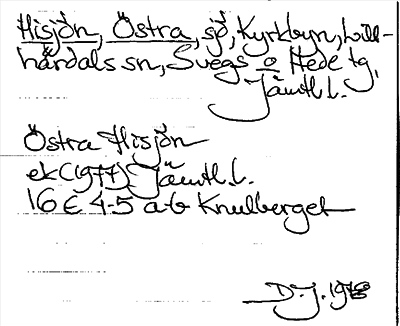 Hisjön, Östra, sjö, Kyrkbyn, Lill-
härdals sn, Svegs o Hede tg,
Jämtl. l.
Östra Hisjön
ek (1977) Jämtl. l.
16 E 4-5 a-b Knulberget
D.J. 1978